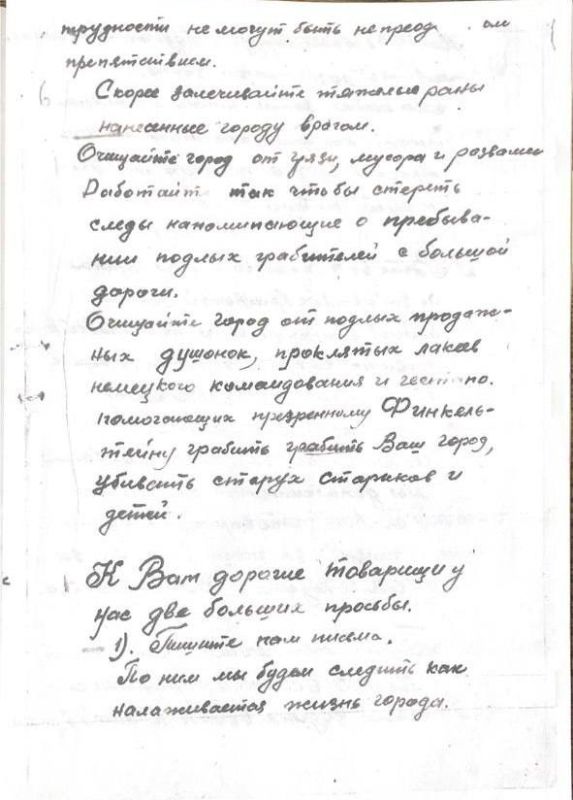 трудности не могут быть непреод ом
препятствием.
Скорее залечивайте тяжелые раны
нанесенные городу врагом.
Очищайте город от грязи, мусора и развалин
Работайт так чтобы стереть
следы напоминающие о пребыва-
нии подлых грабителей с большой
дороги.
Очищайте город от подлых продаж-
ных душонок, проклятых лакев
немецкого командования и гестапо.
помогающих презренному Финкель-
тейну грабить грабить Ваш город,
убивать старух стариков и
детей.
К Вам дорогие товарищи у
нас две больших просьбы.
1). Пишите нам письма.
По ним мы будем следить как
налаживается жизнь города.